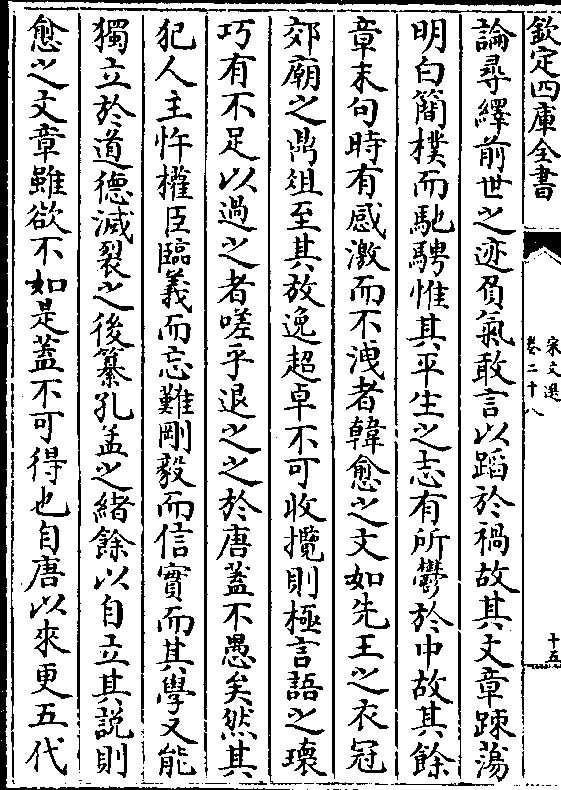 欽定四庫全書
宋文選
卷二十八
十五
論尋繹前世之迹負氣敢言以蹈於禍故其文章踈蕩
明白簡樸而馳騁惟其平生之志有所鬱於中故其餘
章末句時有感激而不洩者韓愈之文如先王之衣冠
郊廟之鼎俎至其放逸超卓不可收攬則極言語之瓌
巧有不足以過之者嗟乎退之之於唐蓋不愚矣然其
犯人主忤權臣臨義而忘難剛毅而信實而其學又能
獨立於道德滅裂之後纂孔孟之緒餘以自立其説則
愈之文章雖欲不如是蓋不可得也自唐以來更五代